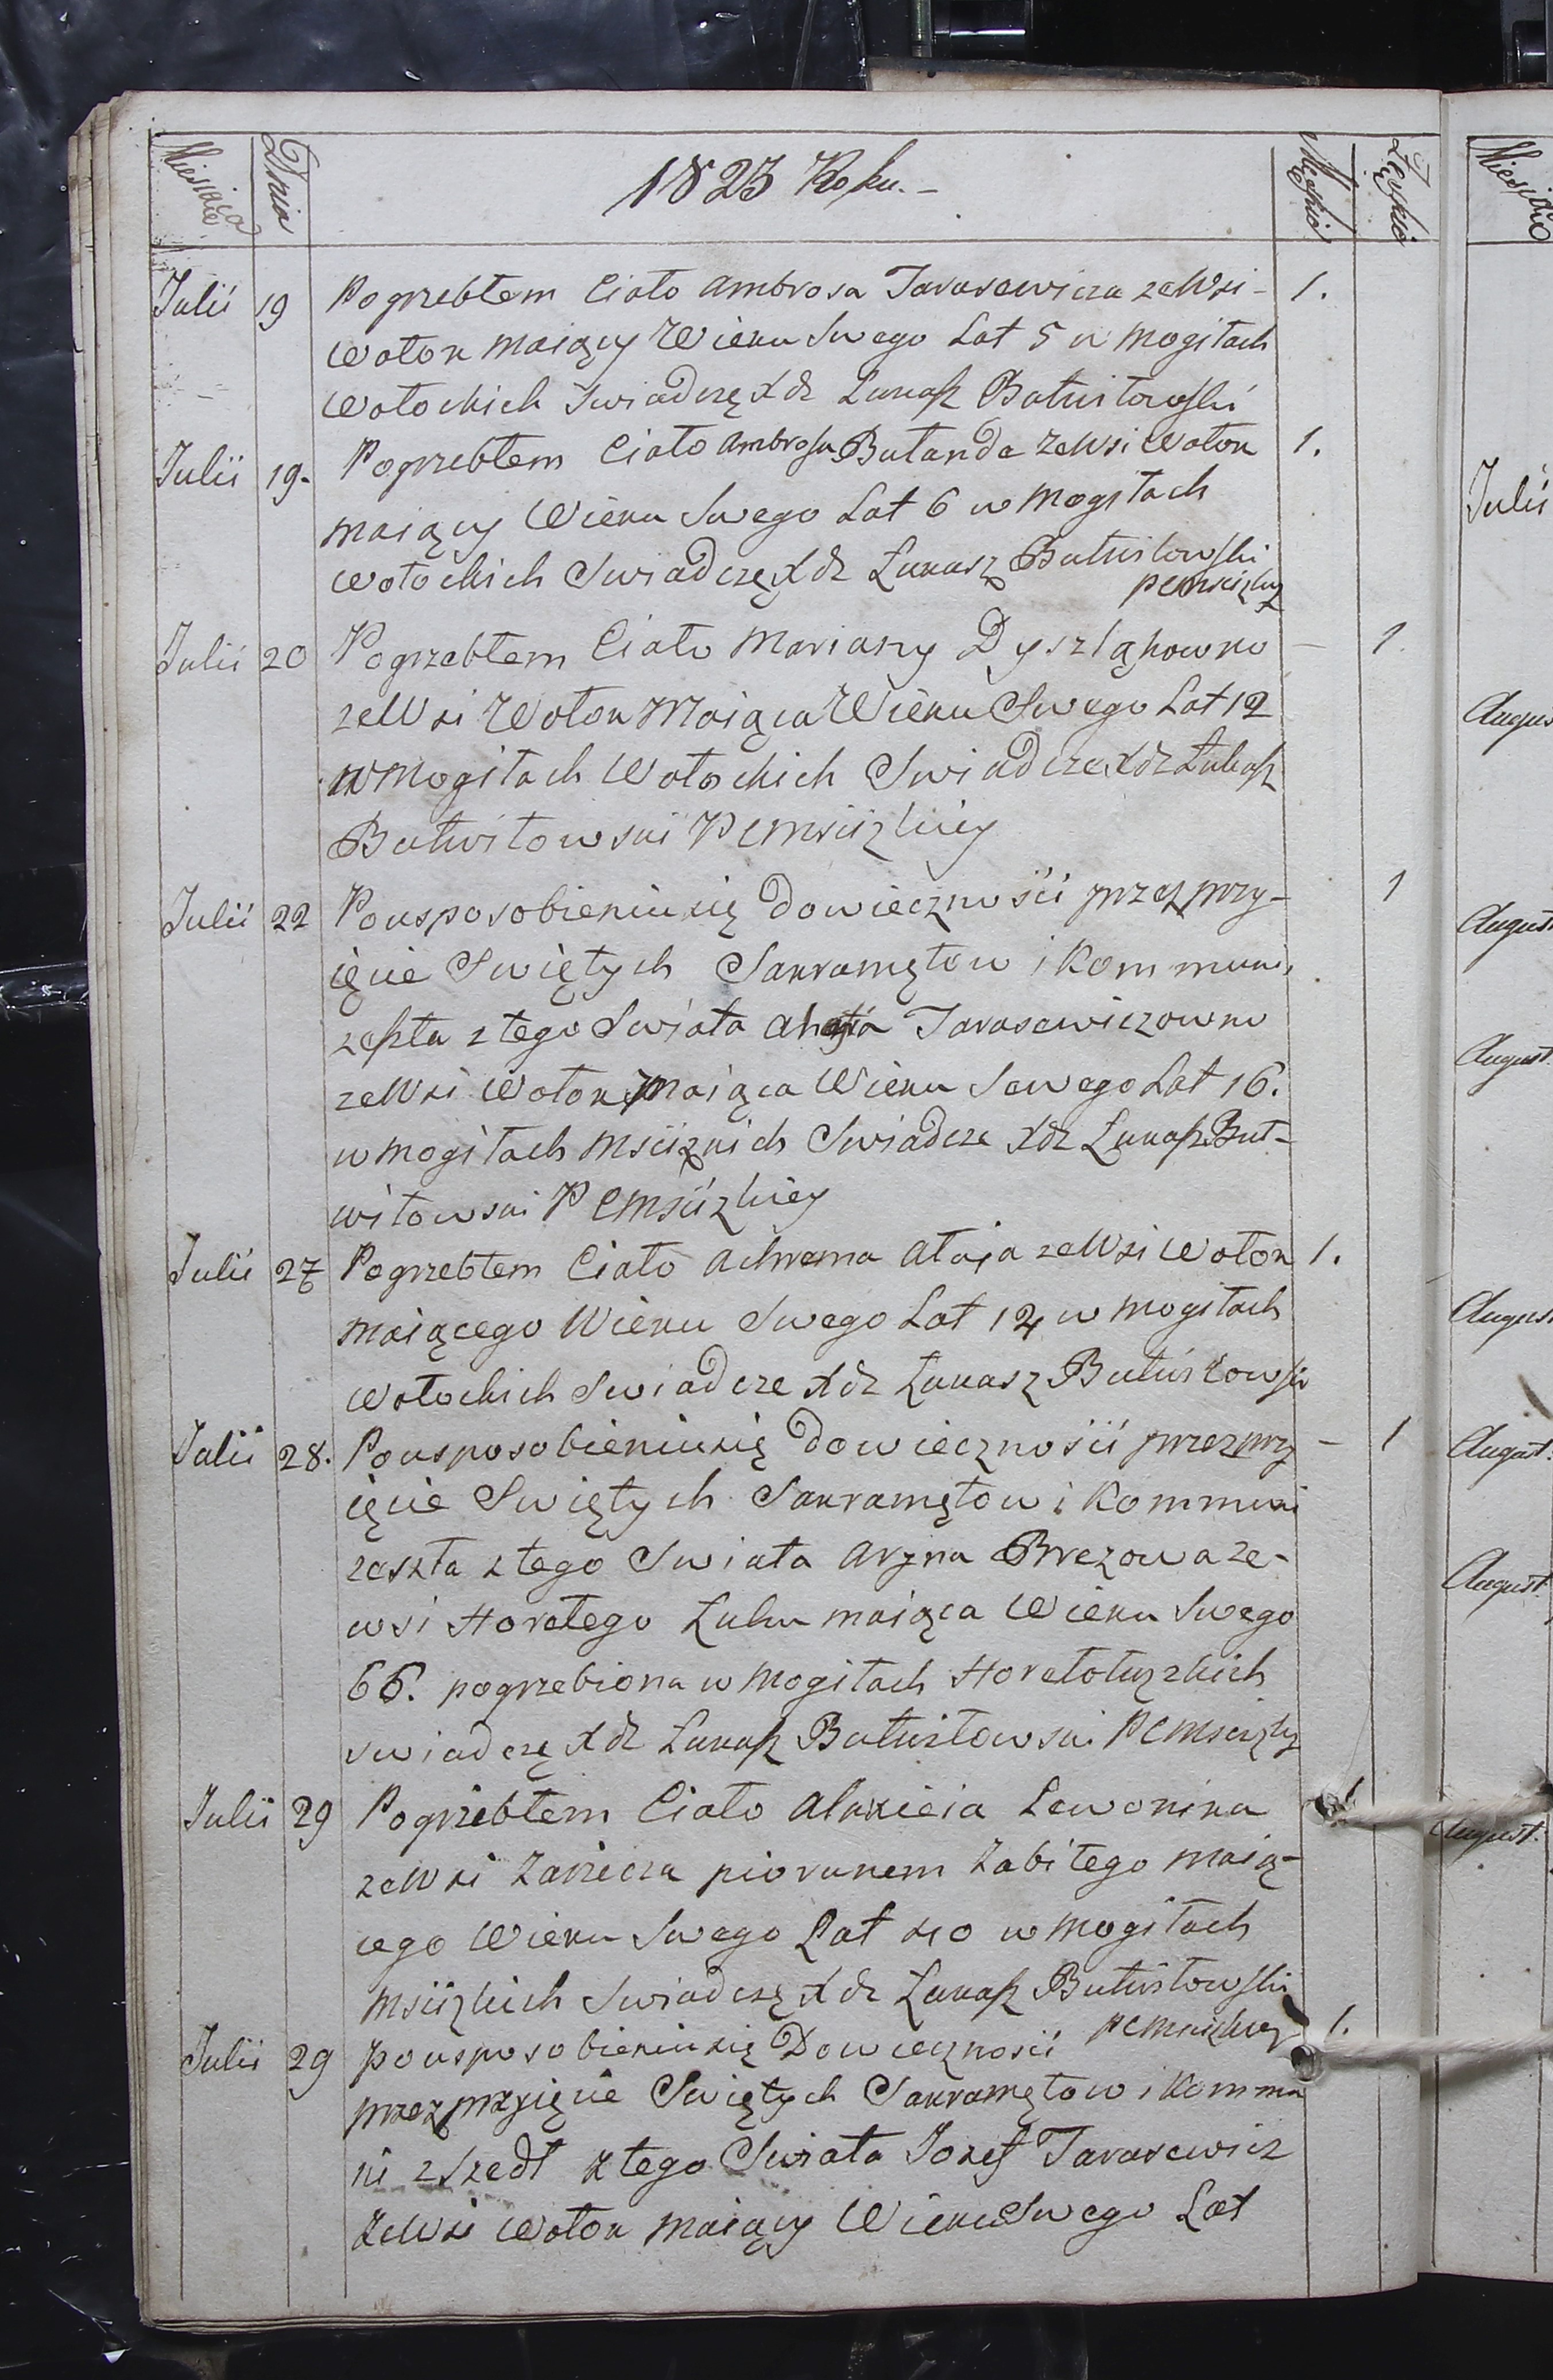 Miesiąca Dnia 1823 Roku.- Męskio Żęskio
Julii 19 Pogrzebłem Ciało Ambrosa Tarasewicza ze Wsi- 1.
Wołok maiący Wieku Swego Lat 5 w mogiłach
Wołockich Swiadczę Xdz Łukasz Butwiłowski
Julii 19. Pogrzebłem Ciało Ambrosa Butanda ze Wsi Wołok 1.
maiący Wieku Swego Lat 6 w mogiłach
Wołockich Swiadczę Xdz Łukasz Butwiłowski
PCMścizky
Julii 20 Pogrzebłem Ciało Mariany Dyszląkowno - 1.
ze Wsi Wołok Maiąca Wieku Swego Lat 12
w mogiłach Wołockich Swiadcze Xdz Łukasz
Butwiłowski PCMściizkiey
Julii 22 Po usposobieniu się do wieczności przez przy- 1
ięcie Swiętych Sakramętow i Kommuni
zeszła z tego Swiata Tarasewiczowno
ze Wsi Wołok Maiąca Wieku Sewego Lat 16.
w mogiłach Mściizkich Swiadcze Xdz Łukasz But-
wiłowski PCMściizkiey
Julii 27 Pogrzebłem Ciało Achrema Ałaja ze Wsi Wołok 1.
maiącego Wieku Swego Lat 12 w mogiłach
Wołockich Swiadcze Xdz Łukasz Butwiłowski
Julii 28. Po usposobieniu się do wieczności przez przy - 1
ięcie Swiętych Sakramętow i Kommuni
zeszła z tego Swiata Aryna Brezowa ze-
wsi Horełego Ługu maiąca Wieku Swego
66. pogrzebiona w Mogiłach Horełołuzkich
swiadczę Xdz Łukasz Butwiłowski PCMścizky
Julii 29 Pogrzebłem Ciało Alaxieia Lewonika 1
ze Wsi Zarzecza piorunem zabitego maią-
cego Wieku Swego Lat 40 w mogiłach
Mściizkich Swiadczę Xdz Łukasz Butwiłowski
PCMścizkiey
Julii 29 Po usposobieniu się Do wieczności 1.
przez przyięcie Swiętych Sakramętow i Kommu
ni zszedł z tego Swiata Jozef Tarasewicz
ze Wsi Wołok maiący Wieku Swego Lat
Miesiąca
Julii
Augus
August
August.
August
August.
August.
August.